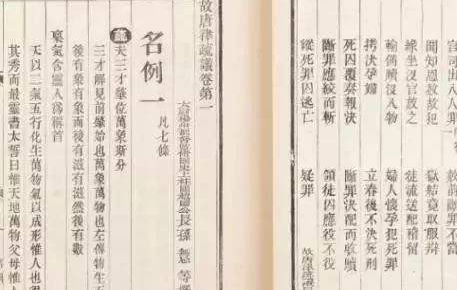 官司出入人罪
赦前斷罪不當
聞知恩赦故犯
獄結竟取服辯
緣坐沒官放之
徒流送配稽留
輸備贖沒入物
婦人懷孕犯死罪
拷決孕婦
立春後不決死刑
死囚覆奏報決
斷罪決配而收贖
斷罪應絞而斬
領徒囚應役不役
縱死罪囚逃亡
疑罪
故唐律疏議卷第一
太尉揚州都督監修國史上柱國趙國公長孫無忌等撰
名例一 凡七條
疏夫三才肇位萬象斯分
三才解見前肇始也萬象萬物也左傳物生
後有象有象而後有滋有滋然後有數
稟氣含靈人為稱首
天以二氣五行化生萬物氣以成形惟人也得
其秀而最靈書太誓曰惟天地萬物父母惟